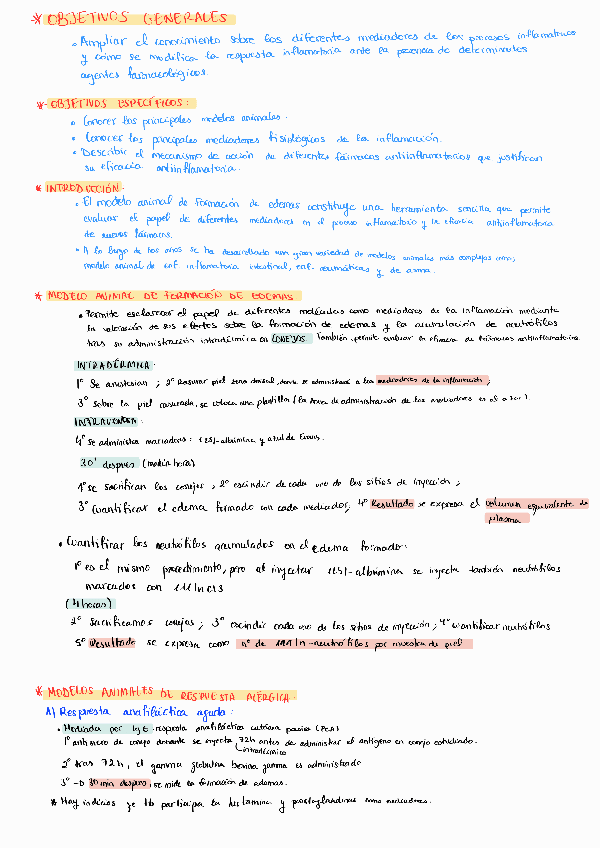 * OBJETIVOS GENERALES
• Ampliar el conocimiento sobre los diferentes mediadores de los procesos inflamatorios
y cómo se modifica la respuesta inflamatoria ante la presencia de determinados
agentes farmacológicos.
* OBJETIVOS ESPECÍFICOS:
• Conocer los principales modelos animales.
• Conocer los principales mediadores fisiológicos de la inflamación.
• Describir el mecanismo de acción de diferentes fármacos antiinflamatorios que justifican
su eficacia antiinflamatoria.
* INTRODUCCIÓN:
• El modelo animal de formación de edemas constituye una herramienta sencilla que permite
evaluar el papel de diferentes mediadores en el proceso inflamatorio y la eficacia antiinflamatoria
de nuevos fármacos.
• A lo largo de los años se ha desarrollado una gran variedad de modelos animales más complejos como,
modelo animal de enf. inflamatoria intestinal, enf. reumáticas y de asma.
* MODELO ANIMAL DE FORMACIÓN DE EDEMAS
• Permite esclarecer el papel de diferentes moléculas como mediadores de la inflamación mediante
la valoración de sus efectos sobre la formación de edemas y la acumulación de neutrófilos
tras su administración intradérmica en CONEJOS. También permite evaluar la eficacia de fármacos antiinflamatorios.
INTRADÉRMICA:
1º Se anestesian ; 2º Rasurar piel zona dorsal, donde se administrará a los mediadores de la inflamación ;
3º Sobre la piel rasurada, se coloca una plantilla
INTRAVENOSA:
4º Se administra marcadores: 125I-albúmina y azul de Evans.
30' después (media hora)
1º se sacrifican los conejos ; 2º escindir de cada uno de los sitios de inyección ;
3º Cuantificar el edema formado con cada mediador; 4º Resultado se expresa el volumen equivalente de
plasma
• Cuantificar los neutrófilos acumulados en el edema formado:
1º es el mismo procedimiento, pero al inyectar 125I-albúmina se inyecta también neutrófilos
marcados con 111InCl3
(4 horas)
2º Sacrificamos conejos ; 3º escindir cada uno de los sitios de inyección ; 4º cuantificar neutrófilos
5º Resultado se expresa como nº de 111In-neutrófilos por muestra de piel
* MODELOS ANIMALES DE RESPUESTA ALÉRGICA.
A) Respuesta anafiláctica aguda:
• Mediada por IgE: respuesta anafiláctica cutánea pasiva (PCA)
1º antisuero de conejo donante se inyecta 72h antes de administrar el antígeno en conejo
intradérmico
2º tras 72h, el gamma globulina bovina gamma es administrado
3º → 30 min después, se mide la formación de edemas.
* Hay indicios participa la histamina y prostaglandinas como mediadores.